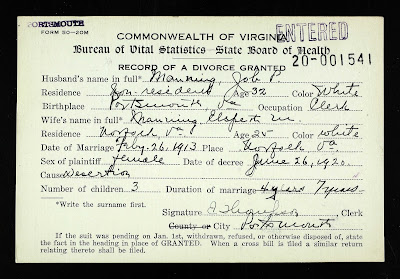 PORTSMOUTH
FORM 50-20M
COMMONWEALTH OF VIRGINIA
ENTERED
Bureau of Vital Statistics—State Board of Health
20-001541
RECORD OF A DIVORCE GRANTED
Husband's name in full* Manning, Job P.
Residence Non-resident Age 32 Color White
Birthplace Portsmouth, Va Occupation Clerk
Wife's name in full* Manning, Elspeth M.
Residence Norfolk Va. Age 25 Color White
Date of Marriage Feby. 26, 1913. Place Norfolk Va.
Sex of plaintiff female Date of decree June 26, 1920.
Cause Desertion
Number of children 3 Duration of marriage 7 years
*Write the surname first.
Signature Clerk
County or City Portsmouth
If the suit was pending on Jan. 1st, withdrawn, refused, or otherwise disposed of, state
the fact in the heading in place of GRANTED. When a cross bill is filed a similar return
relating thereto shall be filed.